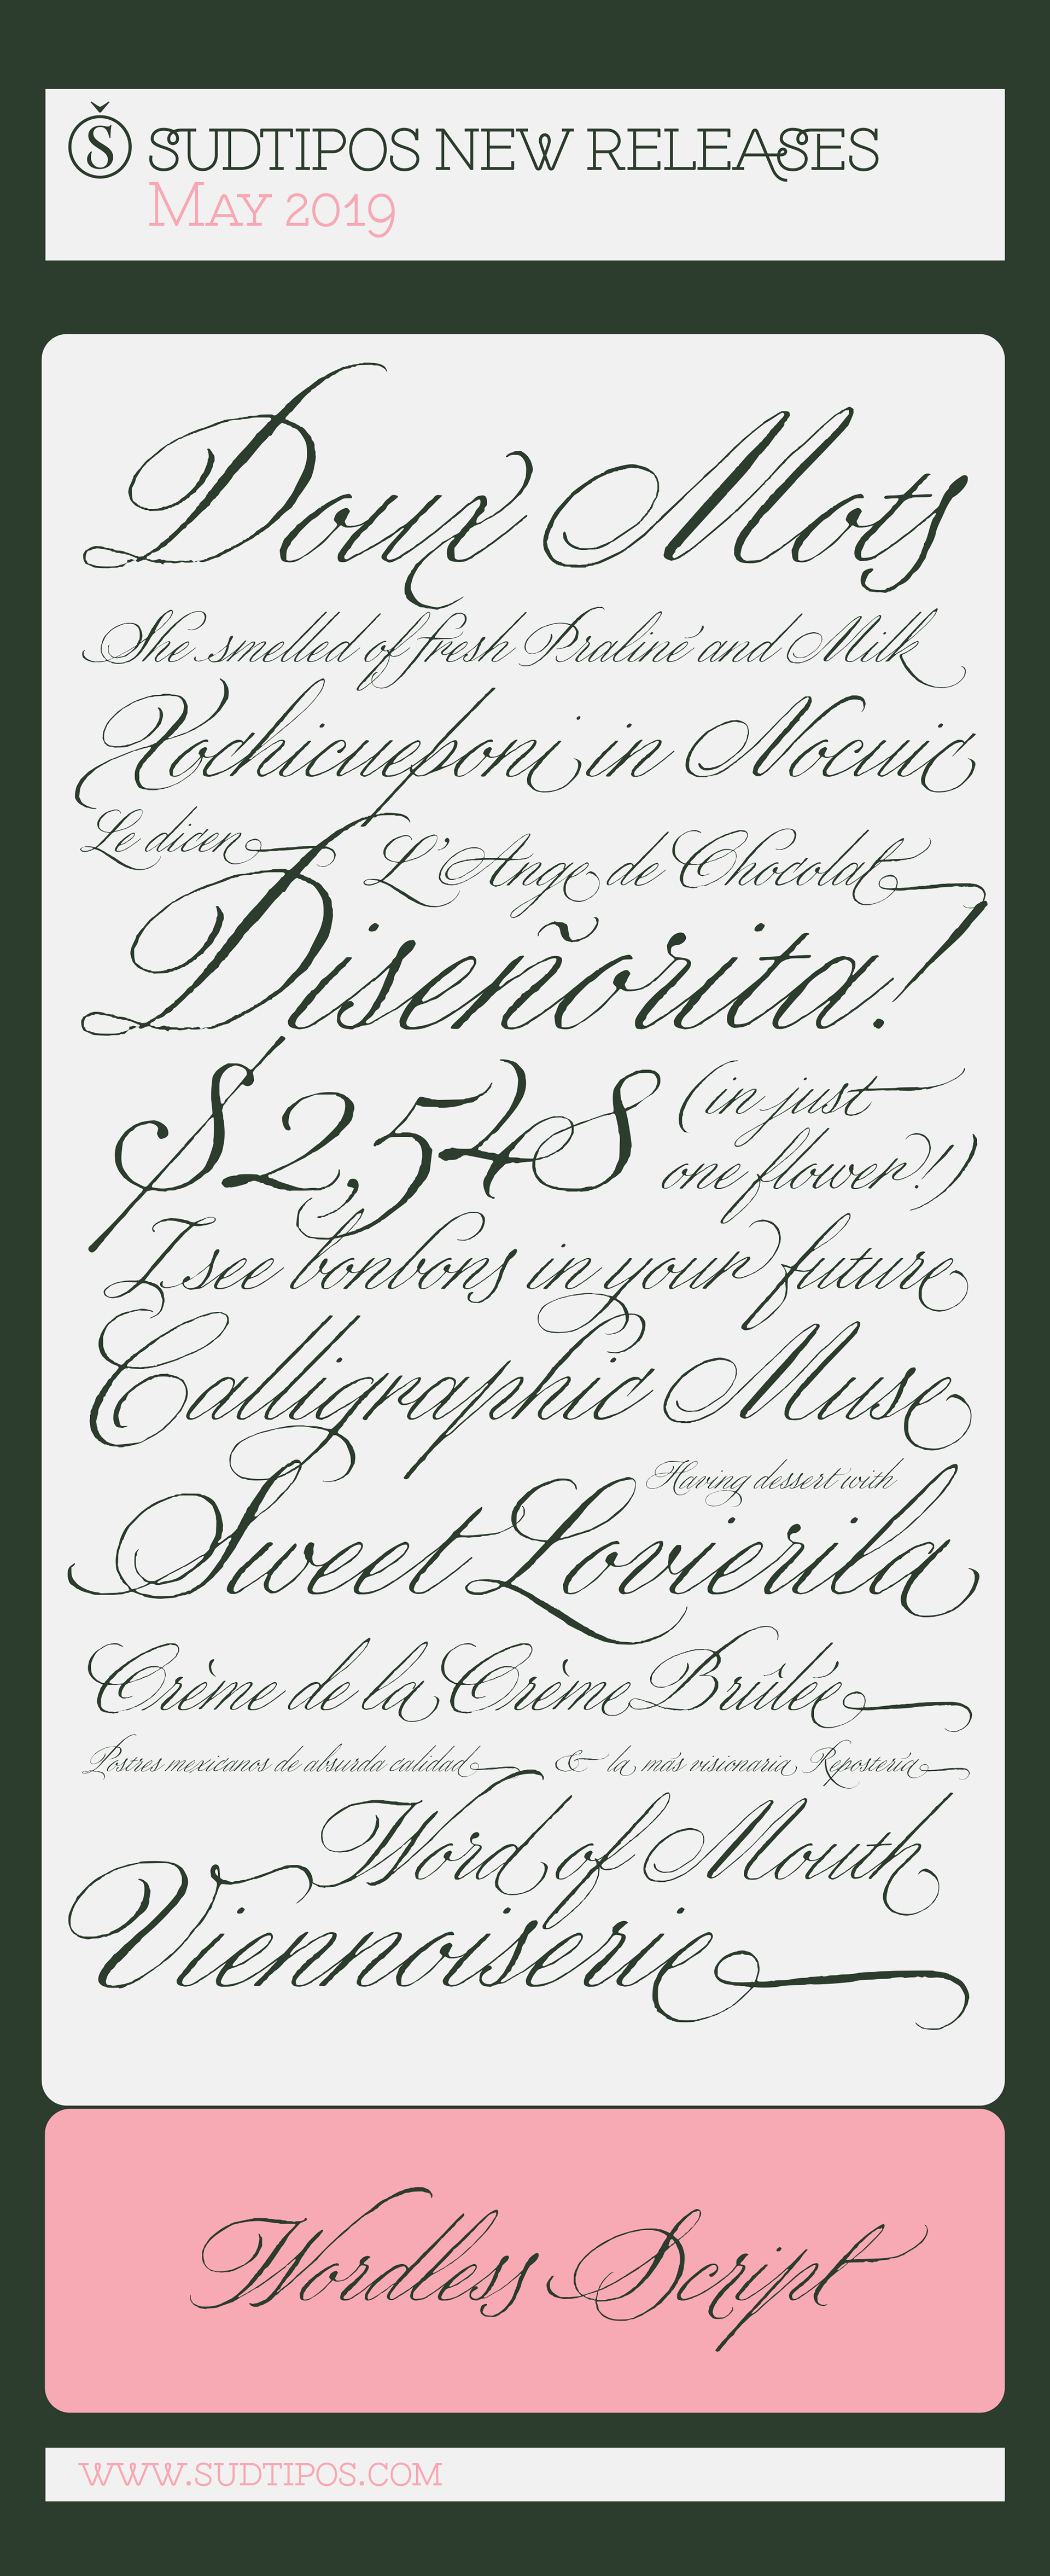 Š SUDTIPOS NEW RELEASES
MAY 2019
Doux Mots
She smelled of fresh Praliné and Milk
Xochicueponi in Nocuic
Le dicen L'Ange de Chocolat
Diseñorita!
$2,548 (in just
one flower!)
I see bonbons in your future
Calligraphic Muse
Having dessert with
Sweet Lovierila
Crème de la Crème Brûlée
Postres mexicanos de absurda calidad & la más visionaria Repostería
Word of Mouth
Viennoiserie
Wordless Script
WWW.SUDTIPOS.COM